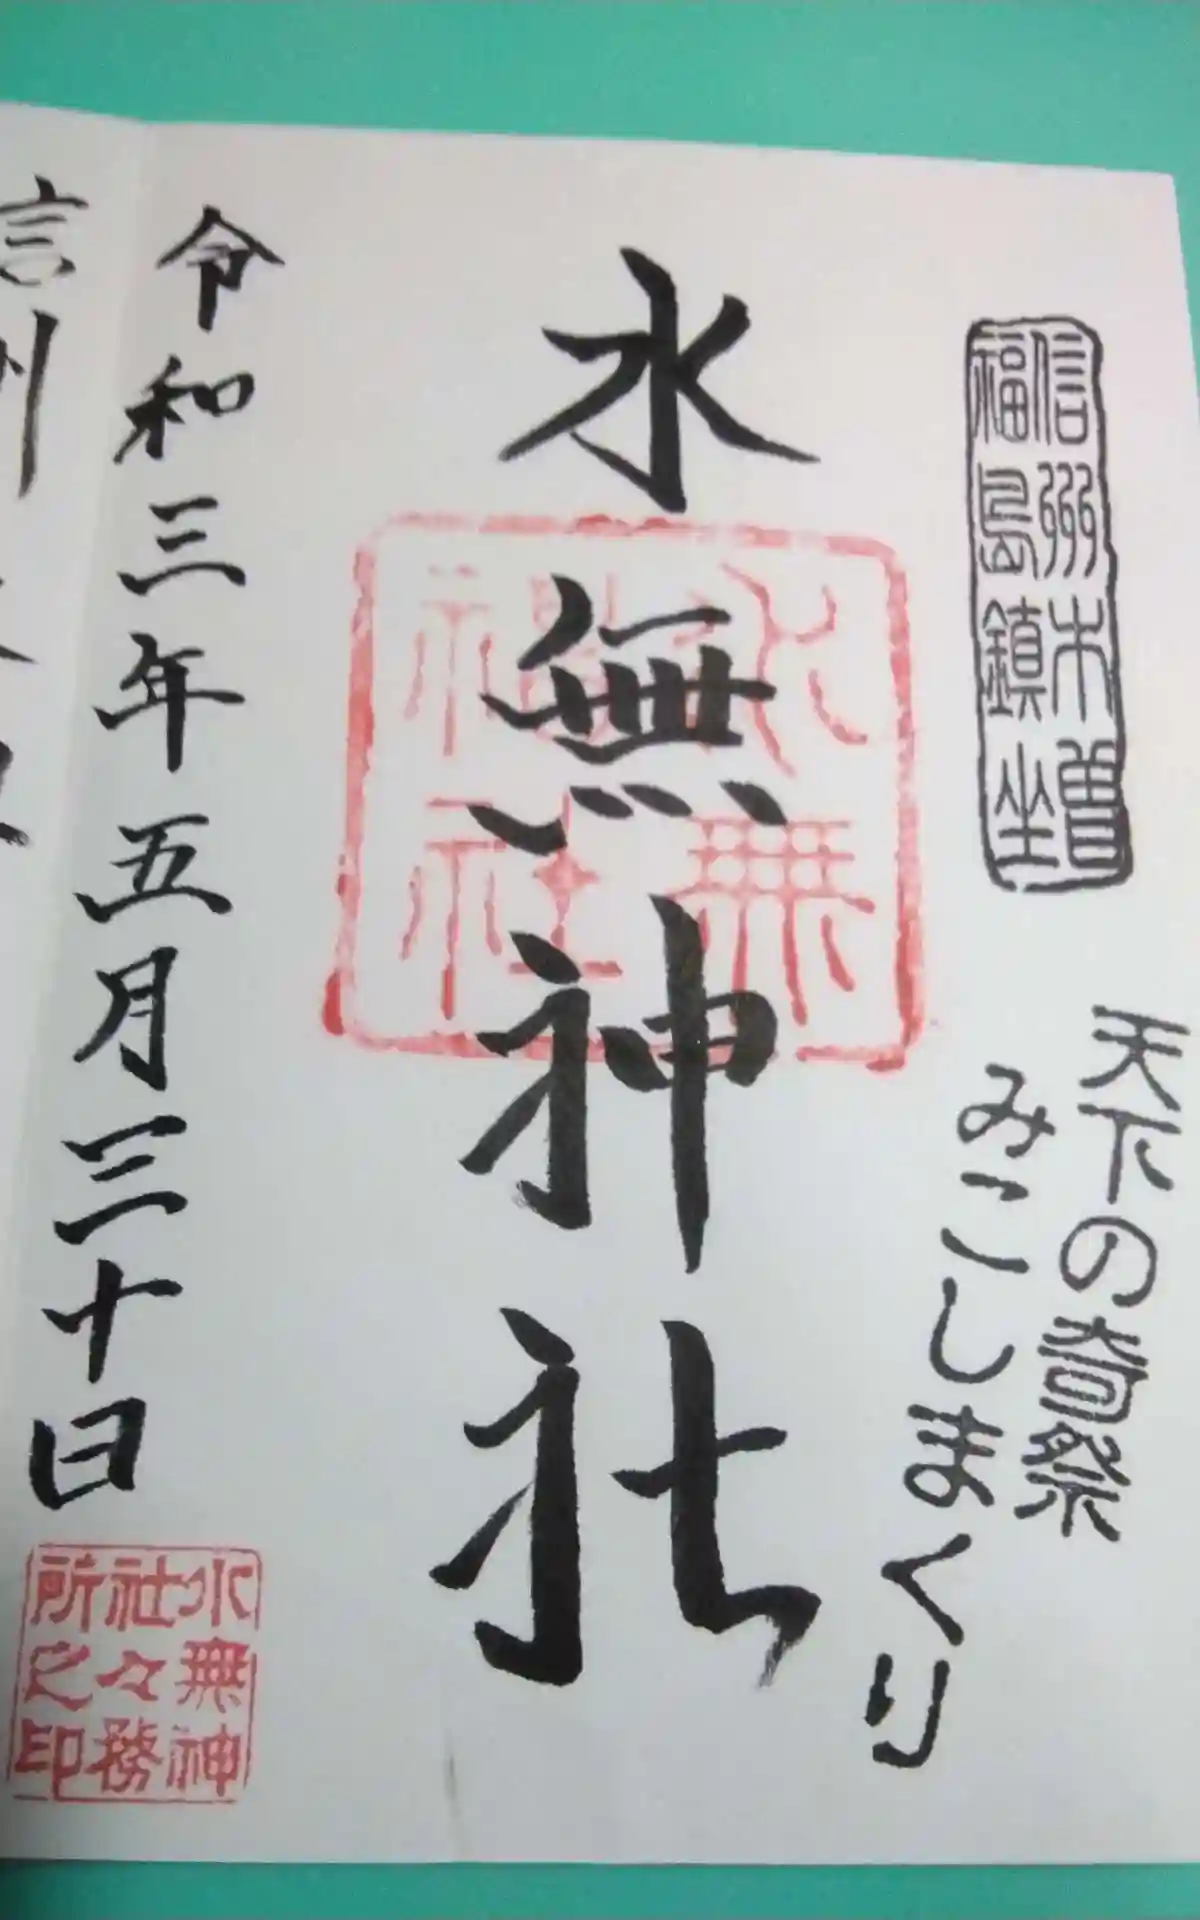 信州木曽
福島鎮坐
天下の奇祭
みこしまくり
水無神社
水無
神社
令和三年五月三十日
水無神
社々務
所之印